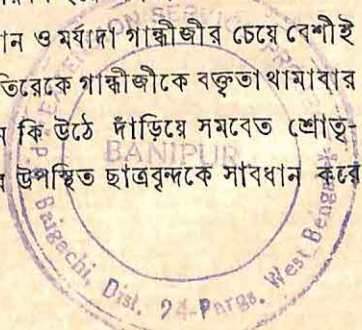 ান ও মর্যাদা গান্ধীজীর চেয়ে বেশীই
তিরেকে গান্ধীজীকে বক্তৃতা থামাবার
কি উঠে দাঁড়িয়ে সমবেত শ্রোতৃ-
উপস্থিত ছাত্রবৃন্দকে সাবধান করে
EXTENSION SERVICE
BANIPUR
Baigachi, Dist. 24-Pargs. West Bengal